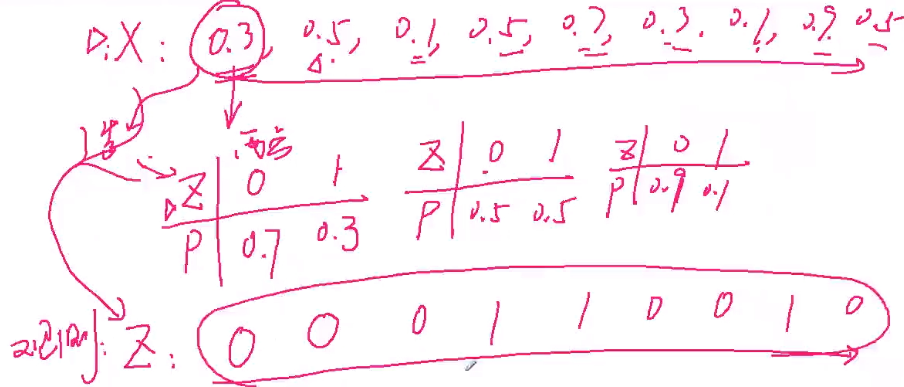 X: 0.3, 0.5, 0.1, 0.5, 0.7, 0.3, 0.1, 0.9 0.5
Z 0 1
P 0.7 0.3
Z 0 1
P 0.5 0.5
Z 0 1
P 0.9 0.1
Z: 0 0 0 1 1 0 0 1 0